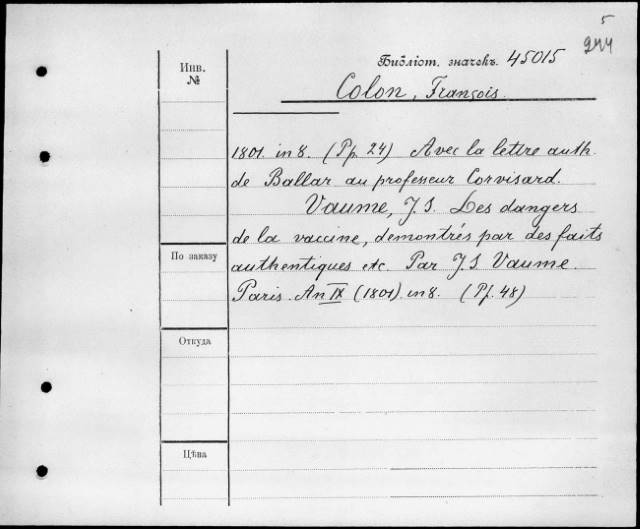 5
244
Инв.
№
Библіот. значекъ. 45015
Colon, François.
1801. in 8. (Pp. 24) Avec la lettre auth.
de Ballar au professeur Corvisard.
Vaume, J. S. Les dangers
de la vaccine, demontrés par des faits
По заказу
authentiques etc. Par J. S. Vaume.
Paris. An IX (1801). in 8. (Pp. 48)
Откуда
Цѣна